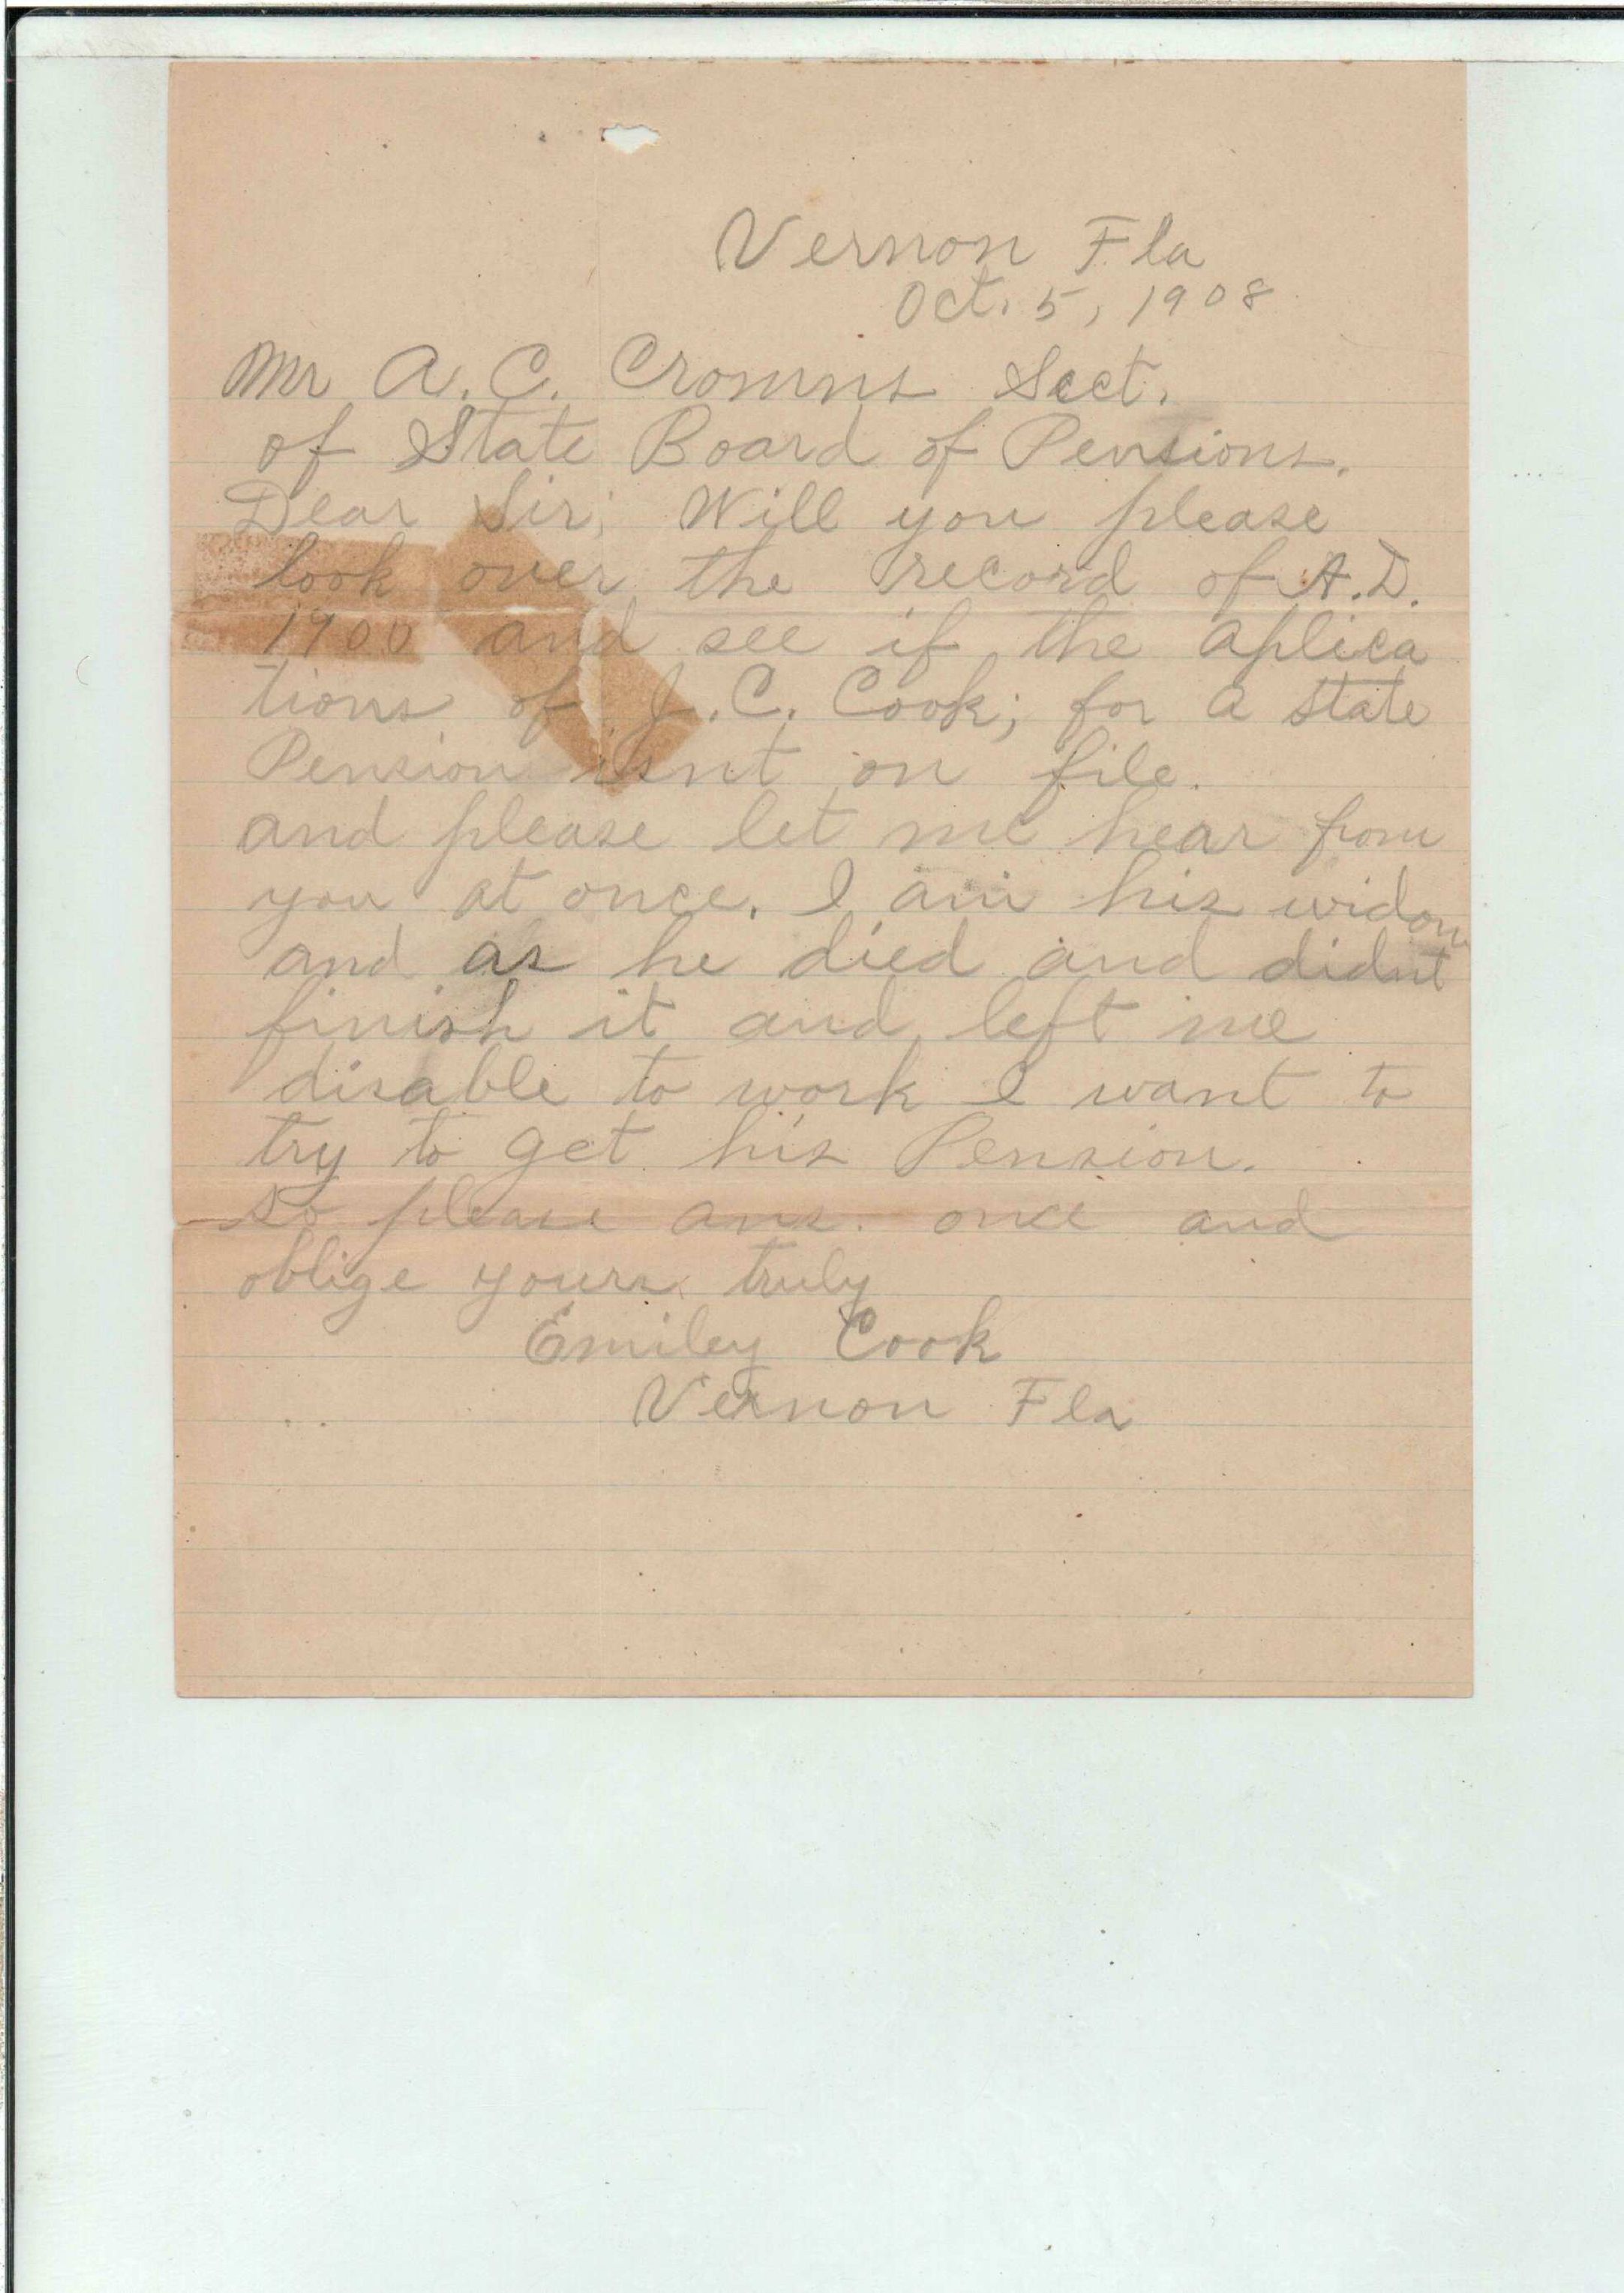 Vernon Fla
Oct. 5, 1908
Mr A. C. Cromns Sect.
of State Board of Pensions.
Dear Sir; Will you please
look over the record of A.D.
1900 and see if the aplica
tions of J. C. Cook; for a state
Pension isnt on file.
and please let me hear from
you at once. I am his widow
and as he died and didnt
finish it and left me
disable to work I want to
try to get his Pension.
so please ans. once and
oblige yours truly
Emiley Cook
Vernon Fla